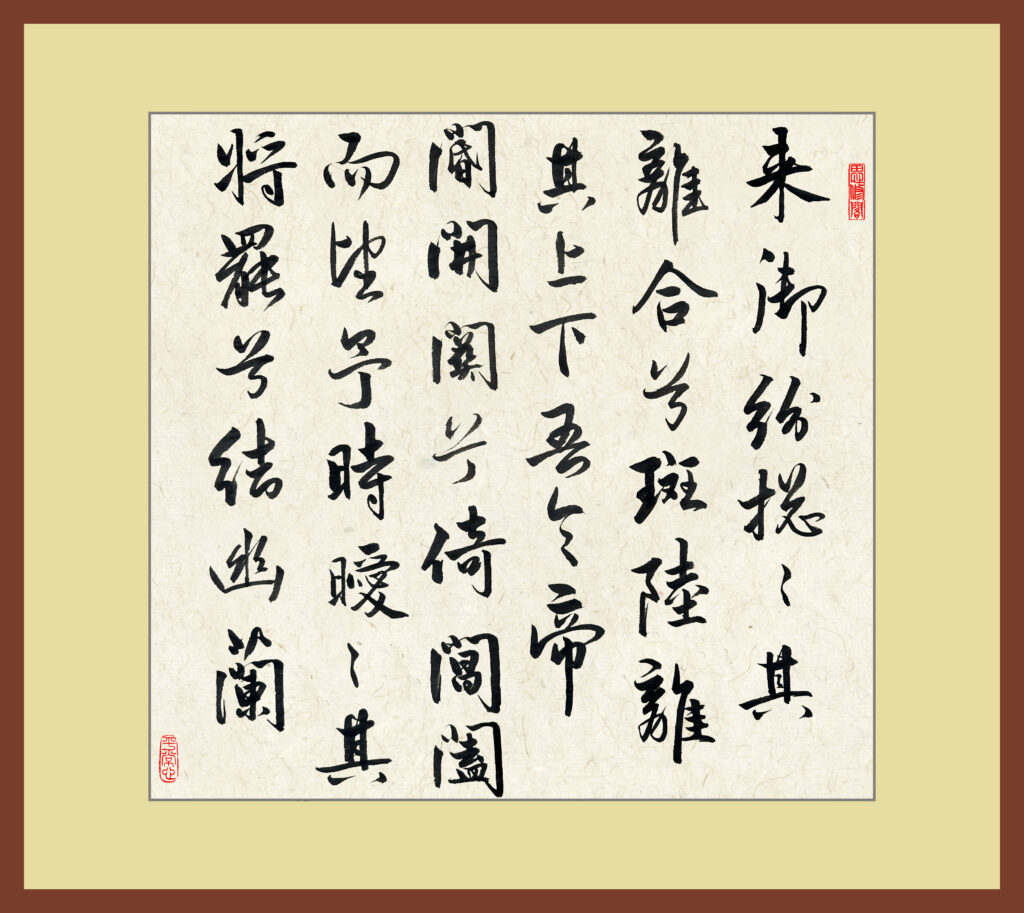 来御紛摠〻其
離合兮斑陸離
其上下吾令帝
閽開關兮倚閶闔
而望予時曖〻其
將罷兮結幽蘭
平常心